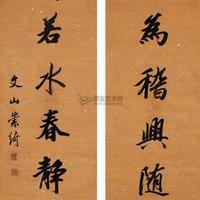 為稽興随
若水春静
文山崇绮